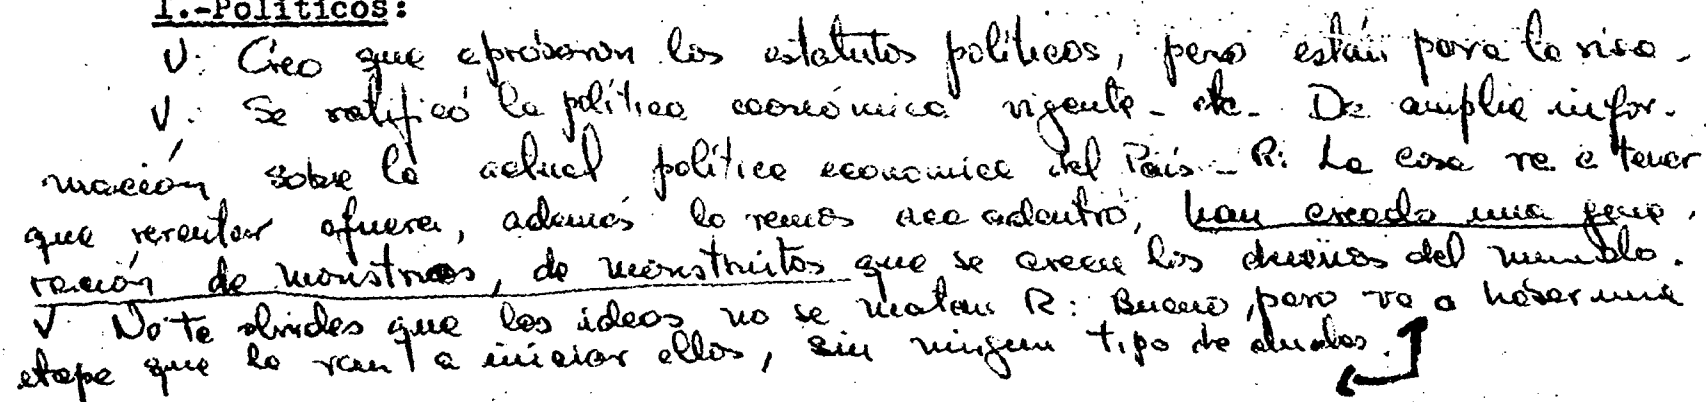 I.-Políticos:
V: Creo que aprobaron los estatutos políticos, pero están para la risa.
V: Se ratificó la política económica vigente - etc - Da amplia infor-
mación sobre la actual política economica del País - R: La cosa va a tener
que reventar afuera, además lo vemos aca adentro, han creado una gene-
ración de monstruos, de monstruitos que se creen los dueños del mundo.
V No te olvides que las ideas no se matan R: Bueno, pero va a haber una
etapa que la van a iniciar ellos, sin ningun tipo de dudas.